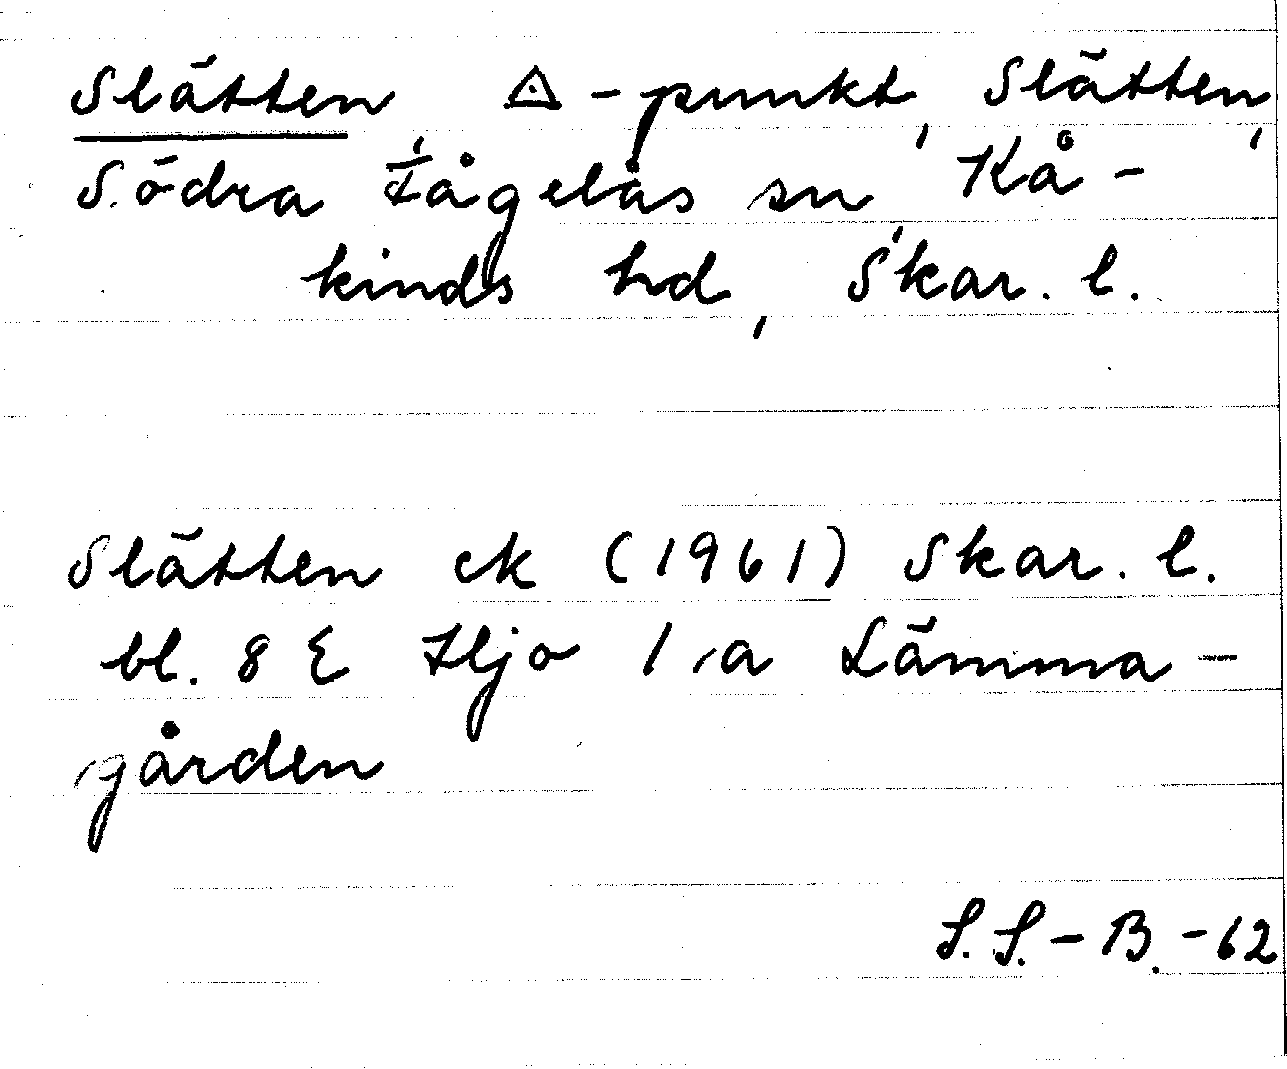 Slätten, △-punkt, Slätten,
Södra Fågelås sn, Kå-
kinds hd, Skar. l.
Slätten ek (1961) Skar. l.
bl. 8 E Hjo 1 a Lämma-
gården
S. S.-B. -62